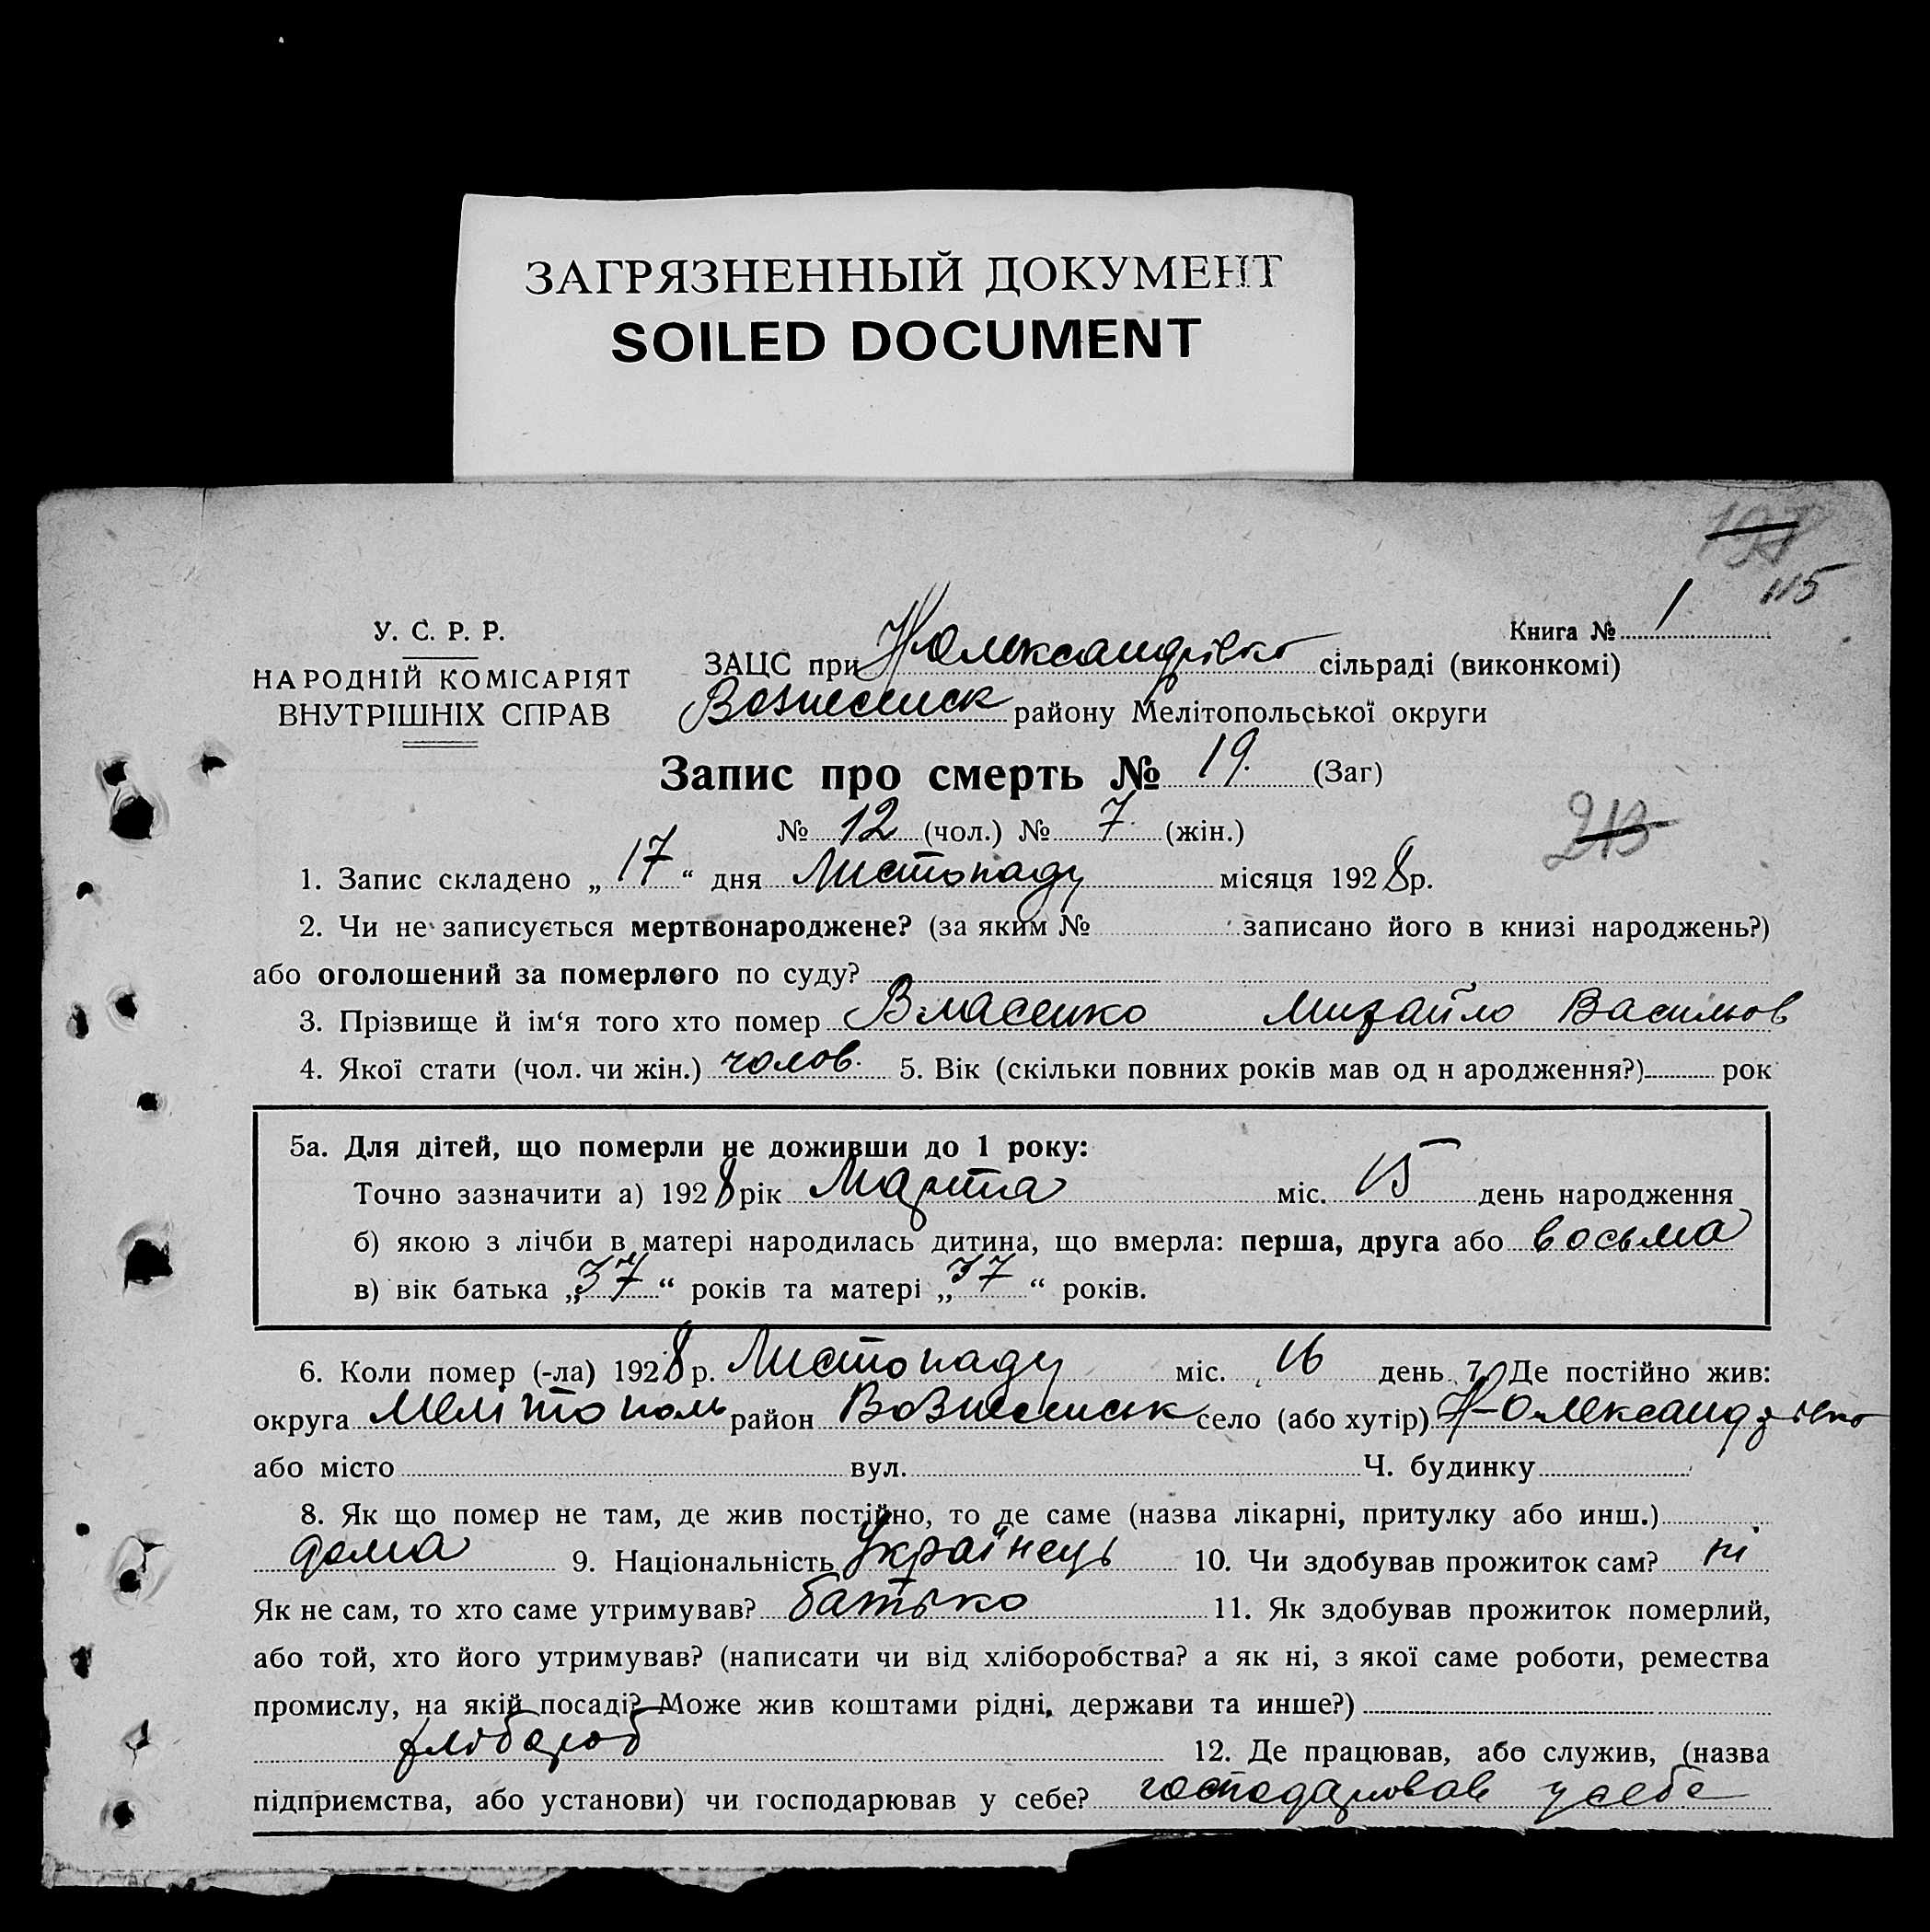 ЗАГРЯЗНЕННЫЙ ДОКУМЕНТ
SOILED DOCUMENT
115
Книга № 1
У. С. Р. Р.
НАРОДНІЙ КОМІСАРІЯТ
ВНУТРІШНІХ СПРАВ
ЗАЦС при Н Олександрівко сільраді (виконкомі)
Вознесенск району Мелітопольської округи
Запис про смерть № 19. (Заг)
№ 12 (чол.) № 7. (жін.)
213
1. Запис складено „17“ дня Листопаду місяця 1928 р.
2. Чи не записується мертвонароджене? (за яким № записано його в книзі народжень?)
або оголошений за померлого по суду?
3. Прізвище й ім‘я того хто помер Власенко Михайло Васильов
4. Якої стати (чол. чи жін.) чолов. 5. Вік (скільки повних років мав од н ародження?) рок
5а. Для дітей, що померли не доживши до 1 року:
Точно зазначити а) 1928 рік Марта міс. 15 день народження
б) якою з лічби в матері народилась дитина, що вмерла: перша, друга або восьма
в) вік батька „37“ років та матері „37“ років.
6. Коли помер (-ла) 1928 р. Листопаду міс. 16 день 7. Де постійно жив:
округа Мелітополь район Вознесенськ село (або хутір) Н-Олександрівко
або місто вул. Ч. будинку
8. Як що помер не там, де жив постійно, то де саме (назва лікарні, притулку або инш.)
дома 9. Національність Українець 10. Чи здобував прожиток сам? ні
Як не сам, то хто саме утримував? батько 11. Як здобував прожиток померлий,
або той, хто його утримував? (написати чи від хліборобства? а як ні, з якої саме роботи, ремества
промислу, на якій посаді? Може жив коштами рідні, держави та инше?)
хлібороб 12. Де працював, або служив, (назва
підприємства, або установи) чи господарював у себе? господарював у себе